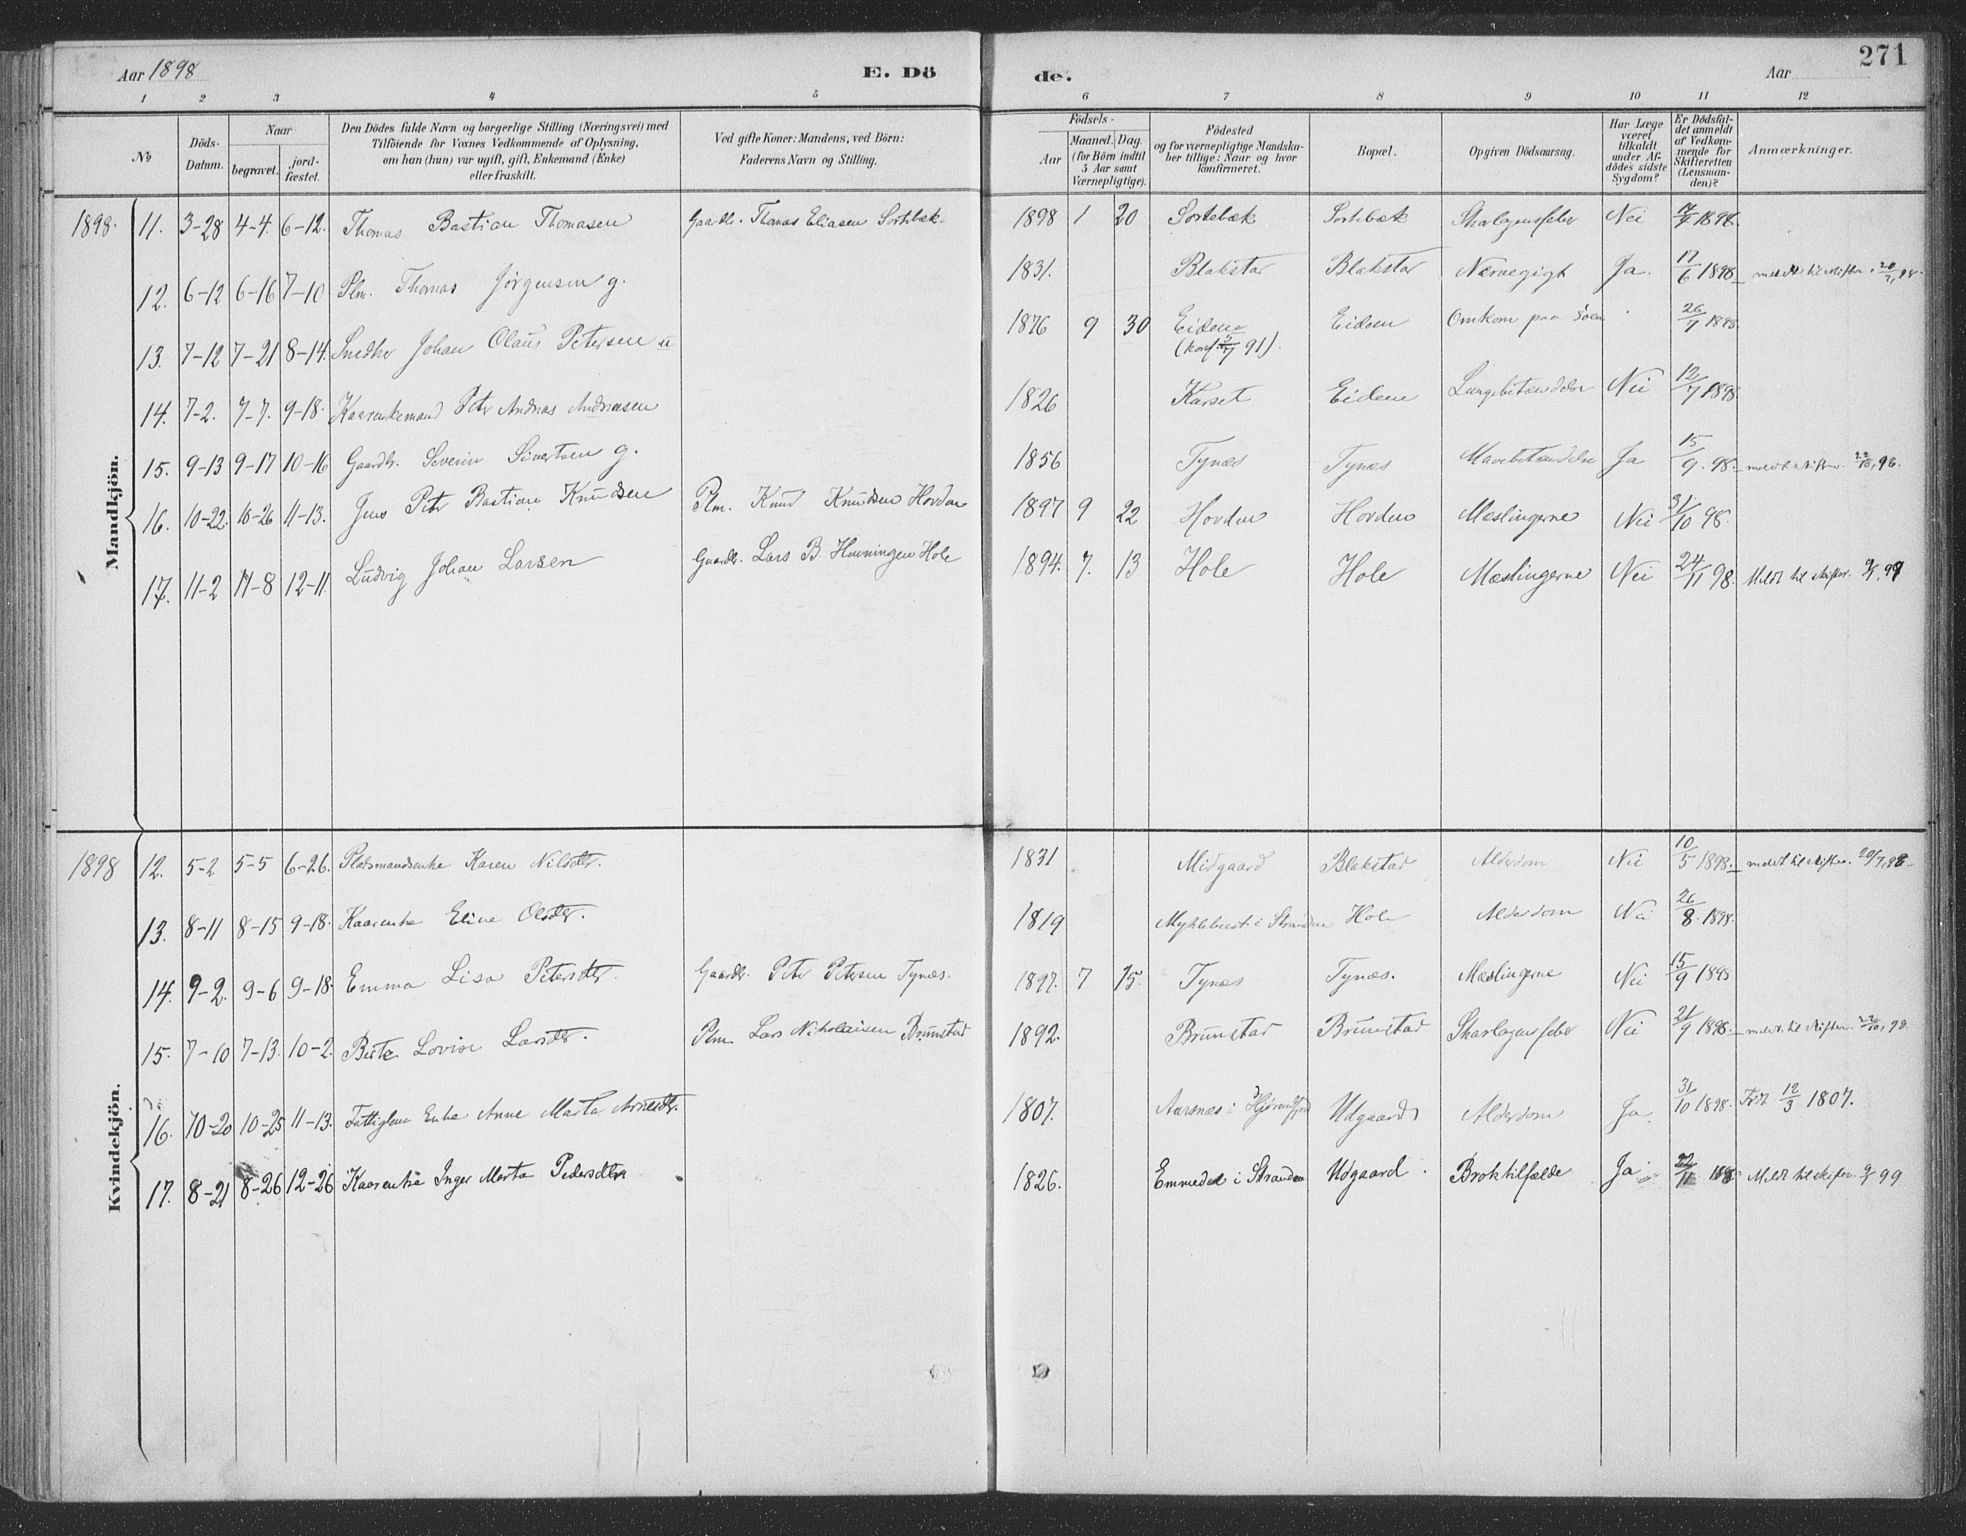 Aar 1898 E. Dö de. Aar 271
1 2 3 4 5 6 7 8 9 10 11 12
No
Döds-Datum.
Naar begravet. jordfæstet.
Den Dödes fulde Navn og borgerlige Stilling (Næringsvei) med
Tilföiende for Voxnes Vedkommende af Oplysning,
om han (hun) var ugift, gift, Enkemand (Enke)
eller fraskilt.
Ved gifte Koner: Mandens, ved Börn:
Faderens Navn og Stilling.
Födsels-
Aar
Maaned. Dag.
(for Börn indtil
5 Aar samt
Værnepligtige).
Födested
og for værnepligtige Mandska-
ber tillige: Naar og hvor
konfirmeret.
Bopæl.
Opgiven Dödsaarsag.
Har Læge
været
tilkaldt
under Af-
dödes sidste
Sygdom?
Er Dödsfal-
det anmeldt
af Vedkom-
mende for
Skifteretten
(Lensman-
den)?
Anmærkninger.
Mandkjön.
1898. 11. 3-28 4-4. 6-12. Thomas Bastian Thomasen Gaardbr. Thomas Eliasen Sortebæk 1898 1 20 Sortebæk Sortebæk Skarlagensfeber Nei 1898.
12. 6-12 6-16 7-10 Plm. Thomas Jörgensen g. 1831. Blakstad Blakstad Nervegigt Ja. 17/6 1898 meldt til skifter.
13. 7-12 7-21 8-14. Snedker Johan Olaus Petersen u 1876 9 30 Eidem Eidem Omkom paa Söen 26/7 1898
(konf. 5/7 91).
14. 7-2. 7-7. 9-18. Kaarenkemand Peter Andreas Andreasen 1826 Karset Eidem Lungebetændelse Nei 12/7 1898
15. 9-13 9-17 10-16 Gaardbr. Severin Sivertsen g. 1856 Tynæs Tynæs Mavebetændelse Ja 15/9. 98. 22/10, 98.
16. 10-22. 10-26 11-13. Jens Peter Bastian Knudsen Plm. Knud Knudsen Hovden 1897 9 22 Hovden Hovden Mæslingerne Nei 31/10 98.
17. 11-2 11-8 12-11. Ludvig Johan Larsen Gaardbr. Lars B. Henningsen Hole 1894. 7. 13 Hole Hole Mæslingerne Nei 24/11 98. Meldt til skifter. 99
Kvindekjön.
1898 12. 5-2 5-5 6-26. Pladsmandsenke Karen Nilsdtr. 1831 Midgaard Blakstad Alderdom Nei 10/5 1898. meldt til skifter. 20/7, 98
13. 8-11 8-15 9-18. Kaarenke Eline Olsdtr. 1819 Myklebust i Stranden Hole Alderdom Nei 26/8. 1898.
14. 9-2. 9-6 9-18. Emma Lisa Petersdtr. Gaardbr. Peter Petersen Tynæs. 1897. 7 15. Tynæs Tynæs. Mæslingerne Nei 15/9 1898
15. 7-10 7-13. 10-2. Berte Lovise Larsdtr. Plm. Lars Nikolaisen Brunstad 1892. Brunstad Brunstad Skarlagensfeber Nei 21/9 1898. meldt til skifter. 22/10, 98.
16. 10-20 10-25 11-13. Fattiglem Enke Anne Marta Arnesdtr. 1807. Aarsnæs i Hjörendfjord Udgaard Alderdom Ja. 31/10 1898. Född 12/3 1807.
17. 8-21 8-26 12-26 Kaarenke Inger Marta Pedersdtr 1826. Emmedal i Stranden Udgaard. Broktilfælde Ja 22/11 Meldt til skifter. 99